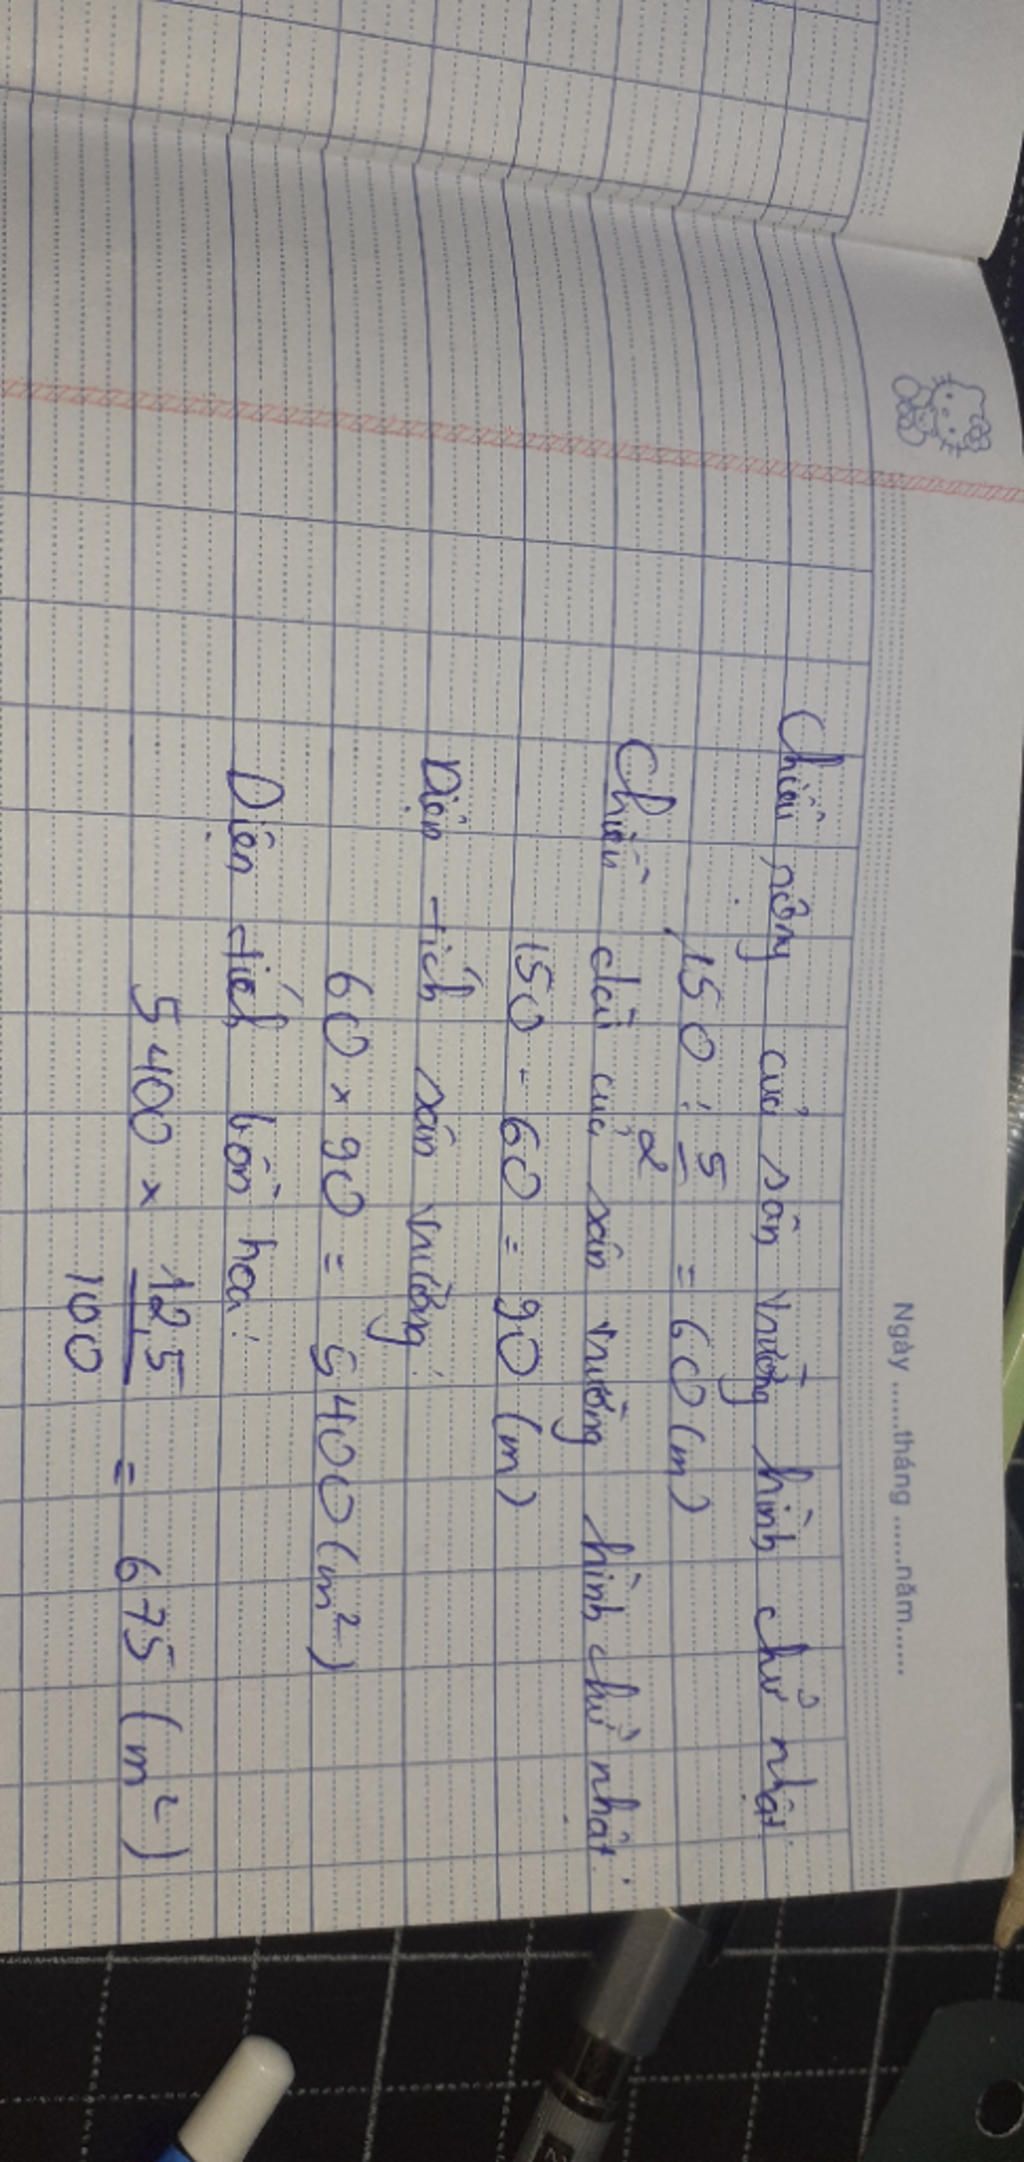 Ngày ......tháng ......năm......
Chiều rộng của sân trường hình chữ nhật:
150 : 5/2 = 60 (m)
Chiều dài của sân trường hình chữ nhật:
150 - 60 = 90 (m)
Diện tích sân trường:
60 × 90 = 5400 (m²)
Diện tích bồn hoa:
5400 × 12,5/100 = 675 (m²)